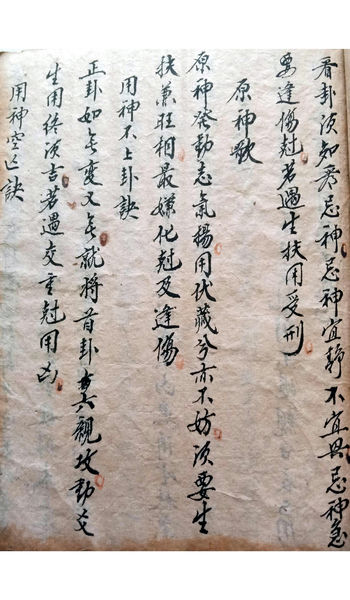 看卦須知忌神忌神宜靜不宜興忌神急
要逢傷尅若遇生扶用受刑
原神歌
原神發動志氣揚用伏藏兮亦不妨須要生
扶兼旺相最嫌化尅及逢傷
用神不上卦訣
正卦如无變又无就將首卦六親攻動爻
生用終須吉若遇交重尅用凶
用神空亡訣